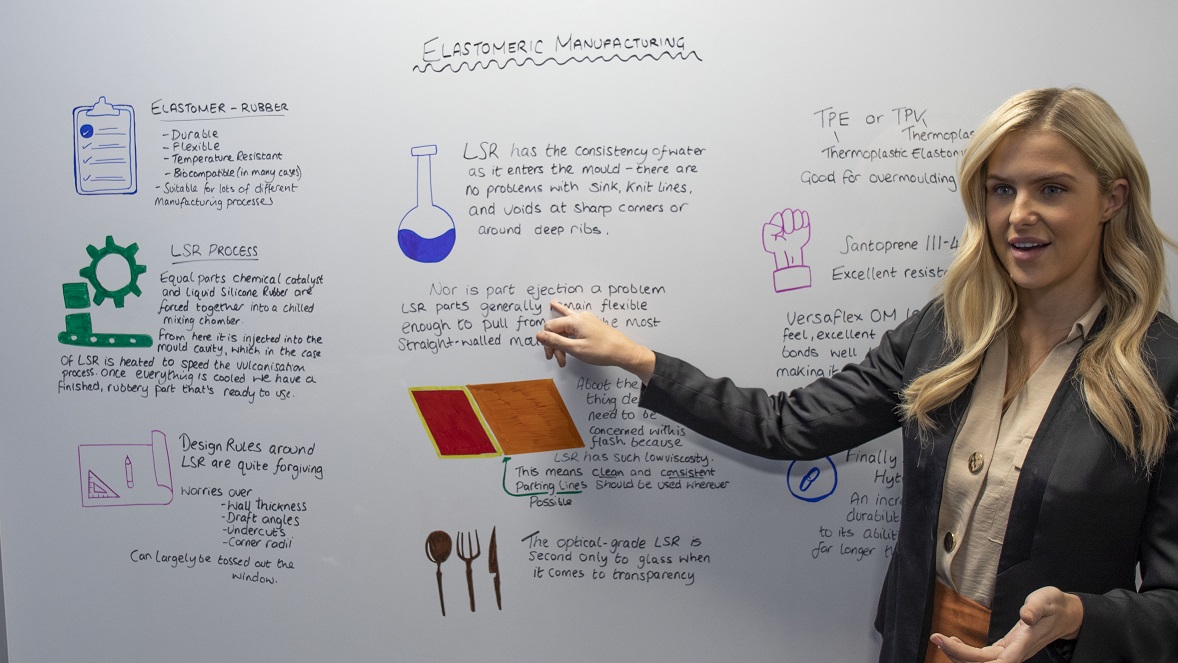 ELASTOMERIC MANUFACTURING
ELASTOMER - RUBBER
- Durable
- Flexible
- Temperature Resistant
- Biocompatible (in many cases)
- Suitable for lots of different
Manufacturing processes
LSR PROCESS
Equal parts chemical catalyst
and liquid Silicone Rubber are
forced together into a chilled
mixing chamber.
From here it is injected into the
mould cavity, which in the case
of LSR is heated to speed the vulcanisation
process. Once everything is cooled we have a
finished, rubbery part that's ready to use.
Design Rules around
LSR are quite forgiving
Worries over
- Wall thickness
- Draft angles
- Undercuts
- Corner radii
Can largely be tossed out the
window.
LSR has the consistency of water
as it enters the mould - there are
no problems with sink, knit lines,
and voids at sharp corners or
around deep ribs.
Nor is part ejection a problem
LSR parts generally remain flexible
enough to pull from the most
Straight-walled
About the
thing
need to be
concerned with is
flash because
LSR has such low viscosity.
This means clean and consistent
Parting lines should be used wherever
Possible
The optical-grade LSR is
second only to glass when
it comes to transparency
TPE or TPV
Thermoplas
Thermoplastic Elastom
Good for overmoulding
Santoprene 111-4
Excellent resista
Versaflex OM
feel, excellent
bonds well
making it
Finally
Hyt
An incr
durabilit
to its abilit
for longer